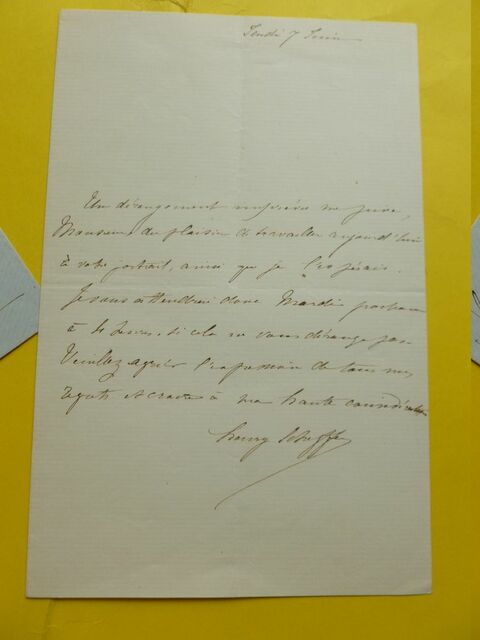 Jeudi 7 Juin
Un dérangement me prive,
Monsieur du plaisir de travailler aujourd'hui
à votre portrait, ainsi que je l'espérais.
Je vous attendrai donc Mardi prochain
à si cela ne vous dérange pas
Veuillez agréer l'expression de tous mes
regrets et croire à ma haute considération
henry Scheffer